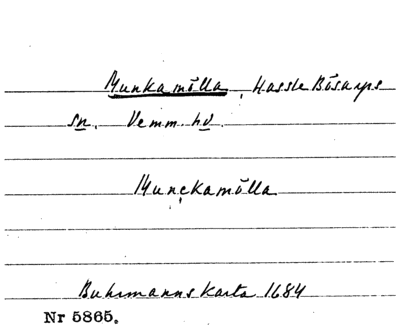 Munkamölla, Hassle Bösarps
sn. Vemm. hd.
Munckamölla
Buhrmanns Karta 1684
Nr 5865.